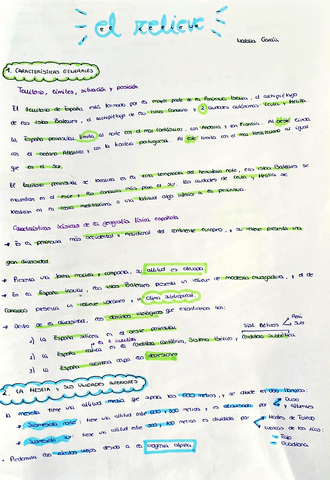 el relieve
Natalia García
1. CARACTERÍSTICAS GENERALES
Territorio, límites, situación y posición
El territorio de España está formado por la mayor parte de la Península Ibérica, el archipiélago
de las Islas Baleares, el archipiélago de las Islas Canarias y 2 ciudades autónomas: Ceuta y Melilla.
La España peninsular limita al norte con el mar Cantábrico, con Andorra y con Francia. Al oeste limita
con el océano Atlántico y con la frontera portuguesa. Al este limita con el mar Mediterráneo al igual
que en el sur.
El territorio peninsular se localiza en la zona templada del hemisferio norte, las Islas Baleares se
encuentran en el este y las Canarias más para el sur. Las ciudades de Ceuta y Melilla se
localizan en la costa
Características básicas de la geografía física española
Es la península más occidental y meridional del continente europeo, y su relieve presenta una
gran diversidad.
Presenta una forma maciza y compacta, su altitud es elevada
En la España insular, las Islas Baleares presenta un relieve de modesta envergadura, y el de
Canarias presenta un relieve volcánico y clima subtropical.
Dentro de la diversidad, los dominios geológicos que encontramos son:
1) La España silícea en el oeste peninsular
2) La España caliza en la cordillera cantábrica, Sistema Ibérico y Cordillera Subbética
3) La España arcillosa ocupa las depresiones
Sist. Béticos
Peni
Sub
2. LA MESETA Y SUS UNIDADES INTERIORES
La meseta tiene una altitud media que ronda los 600 metros, y se divide en dos bloques:
Submeseta norte: tiene una altitud entre 600 y 800 metros y es
Duero
Submeseta sur: tiene una altitud entre 500 y 700 metros es dividida por
Montes de Toledo
cuencas de los ríos:
Tajo
Guadiana
orogenia alpina